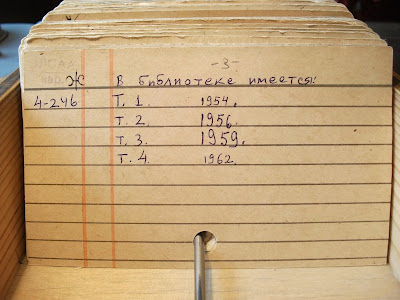 -3-
Ж В библиотеке имеется:
4-246 Т. 1. 1954.
т. 2. 1956.
т. 3. 1959.
т. 4. 1962.